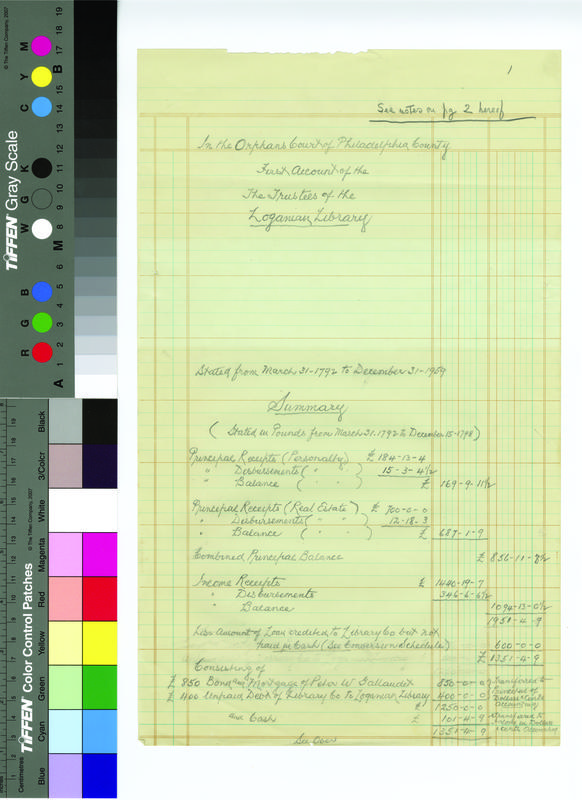 1
See notes on pg 2 hereof
In the Orphans Court of Philadelphia County
First Account of the
The Trustees of the
Loganian Library
Stated from March 31-1792 to December 31-1959
Summary
( Stated in Pounds from March 31.1792 to December 15-1798)
Principal Receipts (Personalty) £ 184-13-4
" Disbursements ( " ) 15-3-4½
" Balance ( " ) £ 169-9-11½
Principal Receipts (Real Estate) £ 700-0-0
" Disbursements ( " " ) 12-18-3
" Balance ( " " ) £ 687-1-9
Combined Principal Balance £ 856-11-8½
Income Receipts £ 1440-19-7
" Disbursements 346-6-6½
" Balance 1094-13-0½
1951-4-9
Less Amount of Loan credited to Library Co but not
paid in Cash (See Conversion Schedule) 600-0-0
£ 1351-4-9
Consisting of
£ 850 Bond and Mortgage of Peter W. Gallaudet 850-0-0
£ 400 Unpaid Debt of Library Co to Loganian Library 400-0-0
Transferred to Principal of Dollars &amp; Cents Accounting
£ 1250-0-0
and Cash £ 101-4-9
transferred to Income in Dollars &amp; Cents Accounting
1351-4-9
See Over
TIFFEN Gray Scale
© The Tiffen Company, 2007
R G B W G K C Y M
A 1 2 3 4 5 6 M 8 9 10 11 12 13 14 15 B 17 18 19
TIFFEN Color Control Patches
© The Tiffen Company, 2007
Centimetres
Blue Cyan Green Yellow Red Magenta White 3/Color Black